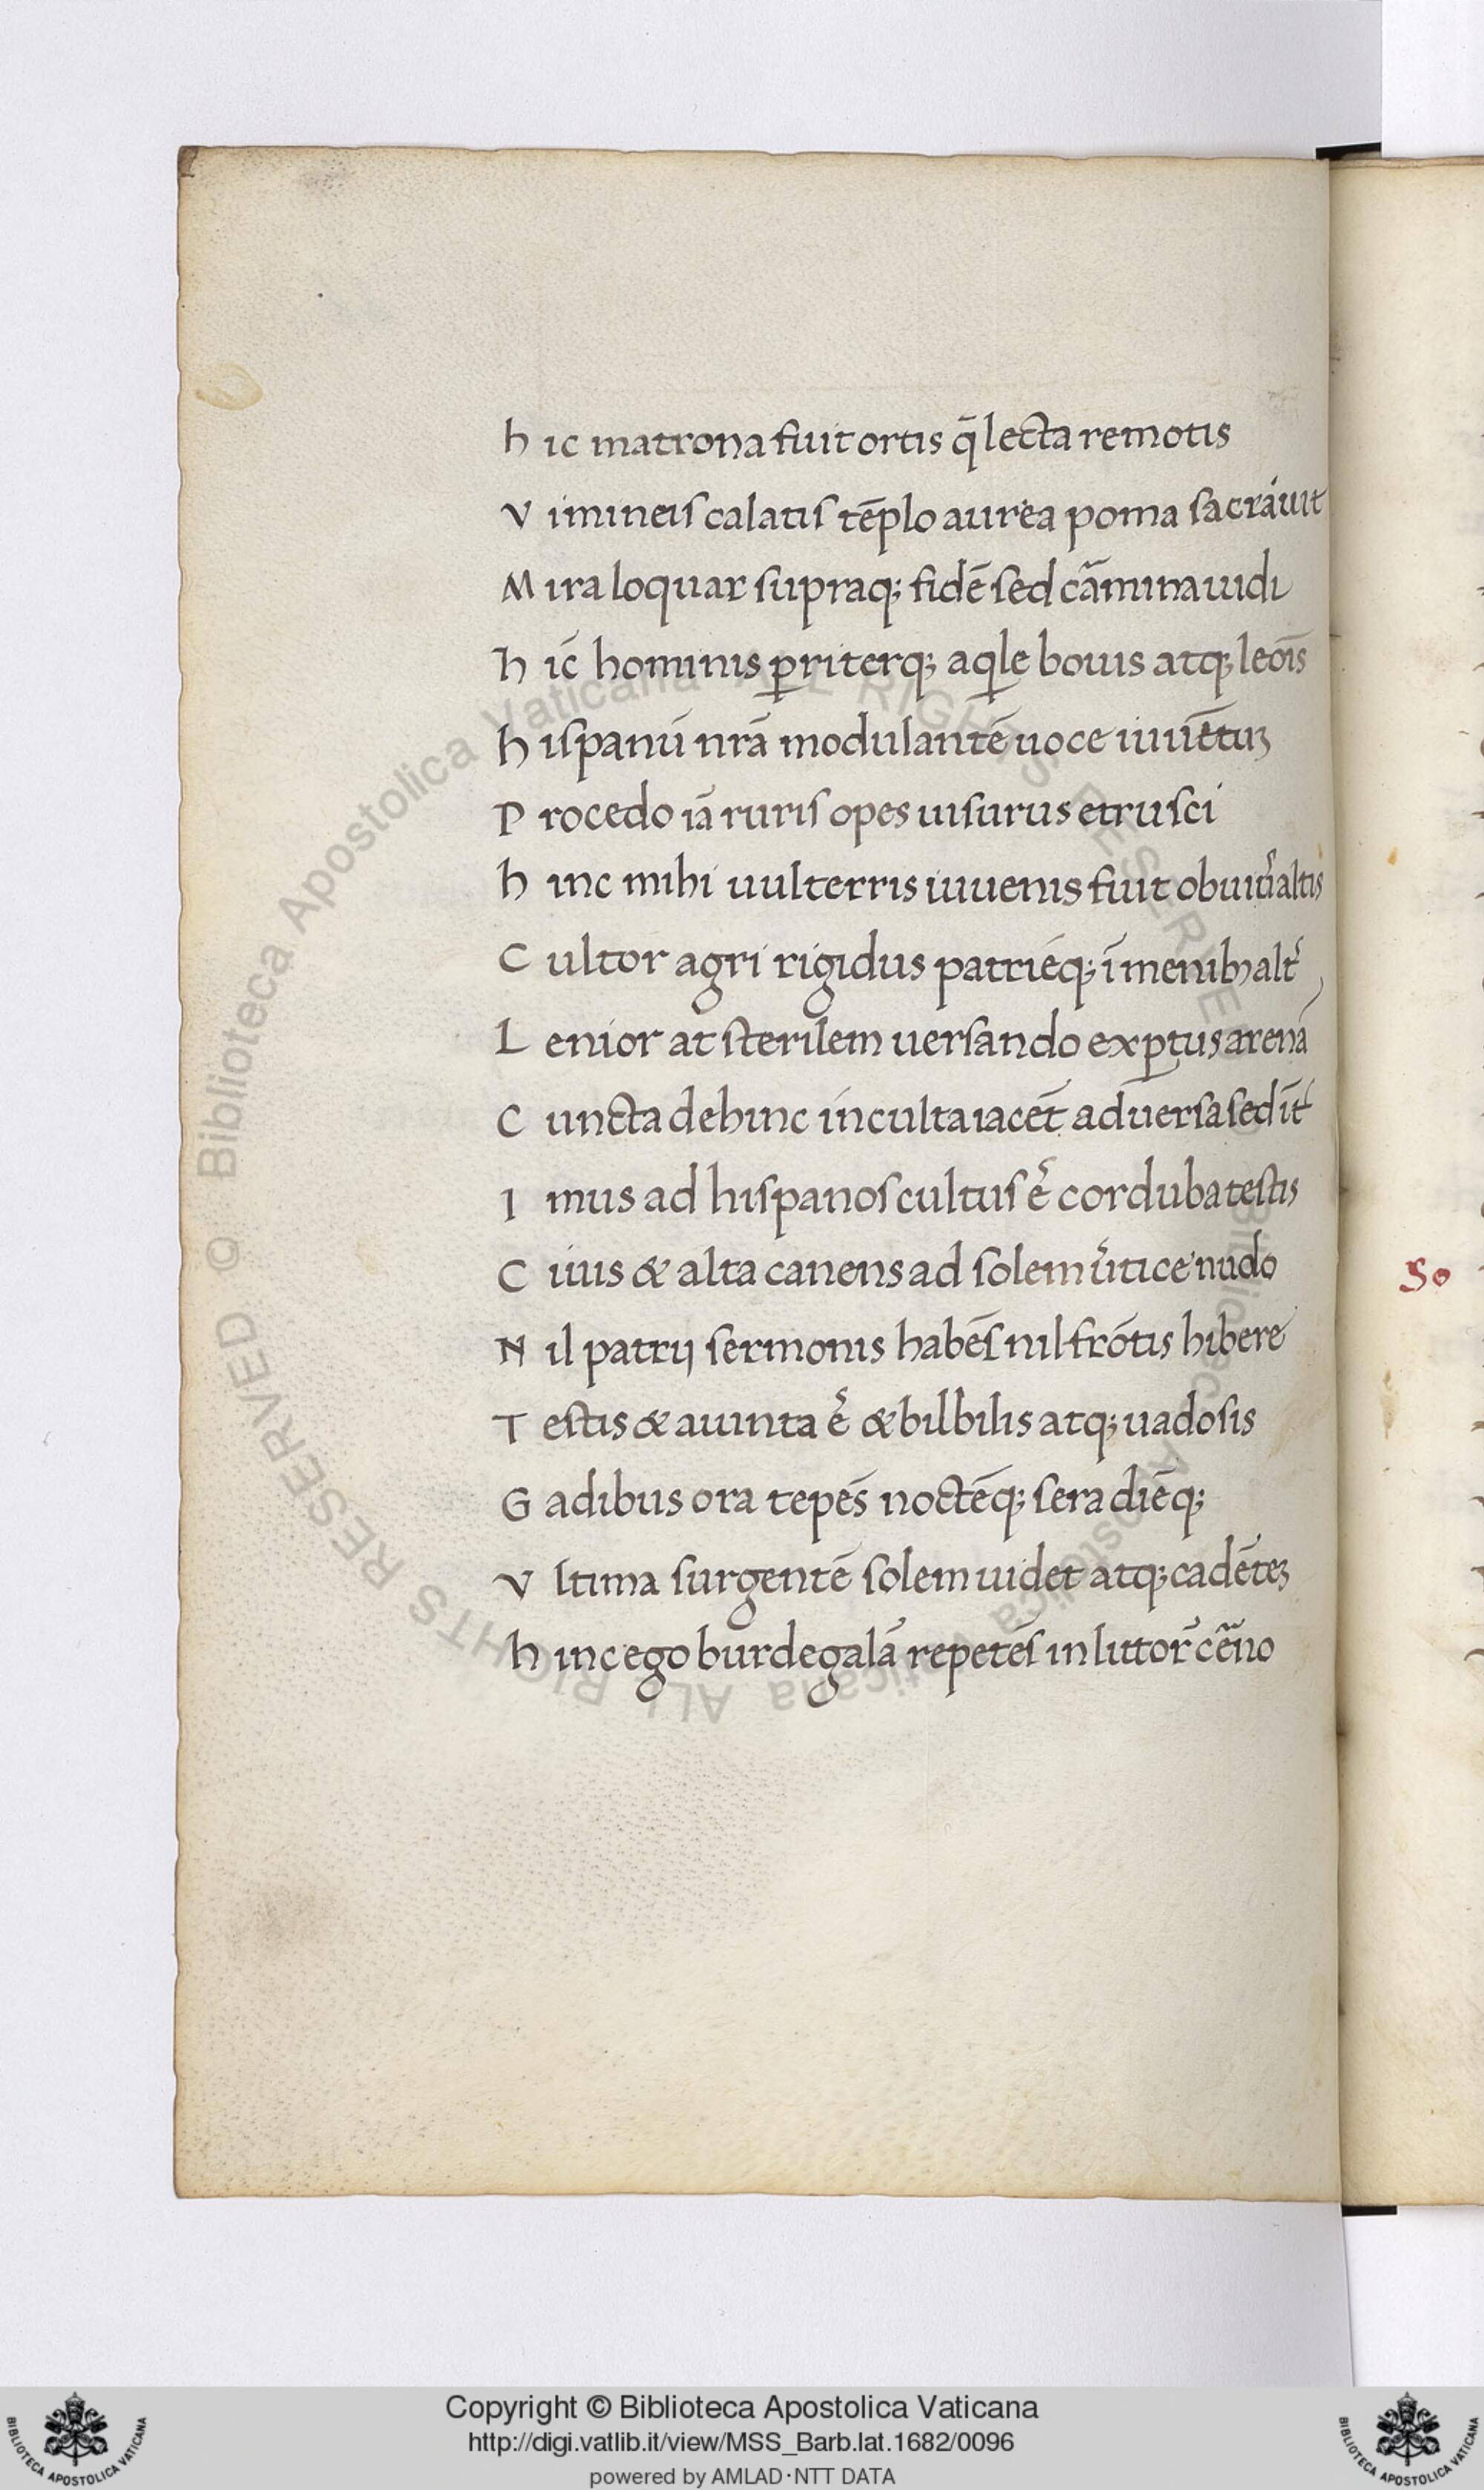 h ic matrona fuit ortis q̄ lecta remotis
V imineis calatis tēplo aurea poma sacrauit
M ira loquar supraq; fidē sed cãmina uidi
h ic̄ hominis ꝑriterq; aqͥle bouis atq; leoīs
h ispanū nrā modulantē uoce iuuētuꝫ
P rocedo iā ruris opes uisurus etrusci
h inc mihi uulterris iuuenis fuit
C ultor agri rigidus patrieq; ī menibꝫ alt᷒
L enior at sterilem uersando exꝑtus arenā
C uncta dehinc inculta iacēt aduersa sedīt
I mus ad hispanos cultus ē corduba testis
C uius & alta canens ad solem u᷒tice nudo
N il patrij sermonis habēs nil frōtis hibere
T estis & auinta ē & bilbilis atq; uadosis
G adibus ora tepēs noctēq; sera diēq;
V ltima surgentē solem uidet atq; cadēteꝫ
h inc ego burdegalā repetēs in littor᷒ cēno
50
Copyright © Biblioteca Apostolica Vaticana
http://digi.vatlib.it/view/MSS_Barb.lat.1682/0096
powered by AMLAD·NTT DATA
© Biblioteca Apostolica Vaticana ALL RIGHTS RESERVED
© Biblioteca Apostolica Vaticana ALL RIGHTS RESERVED
BIBLIOTECA APOSTOLICA VATICANA
BIBLIOTECA APOSTOLICA VATICANA